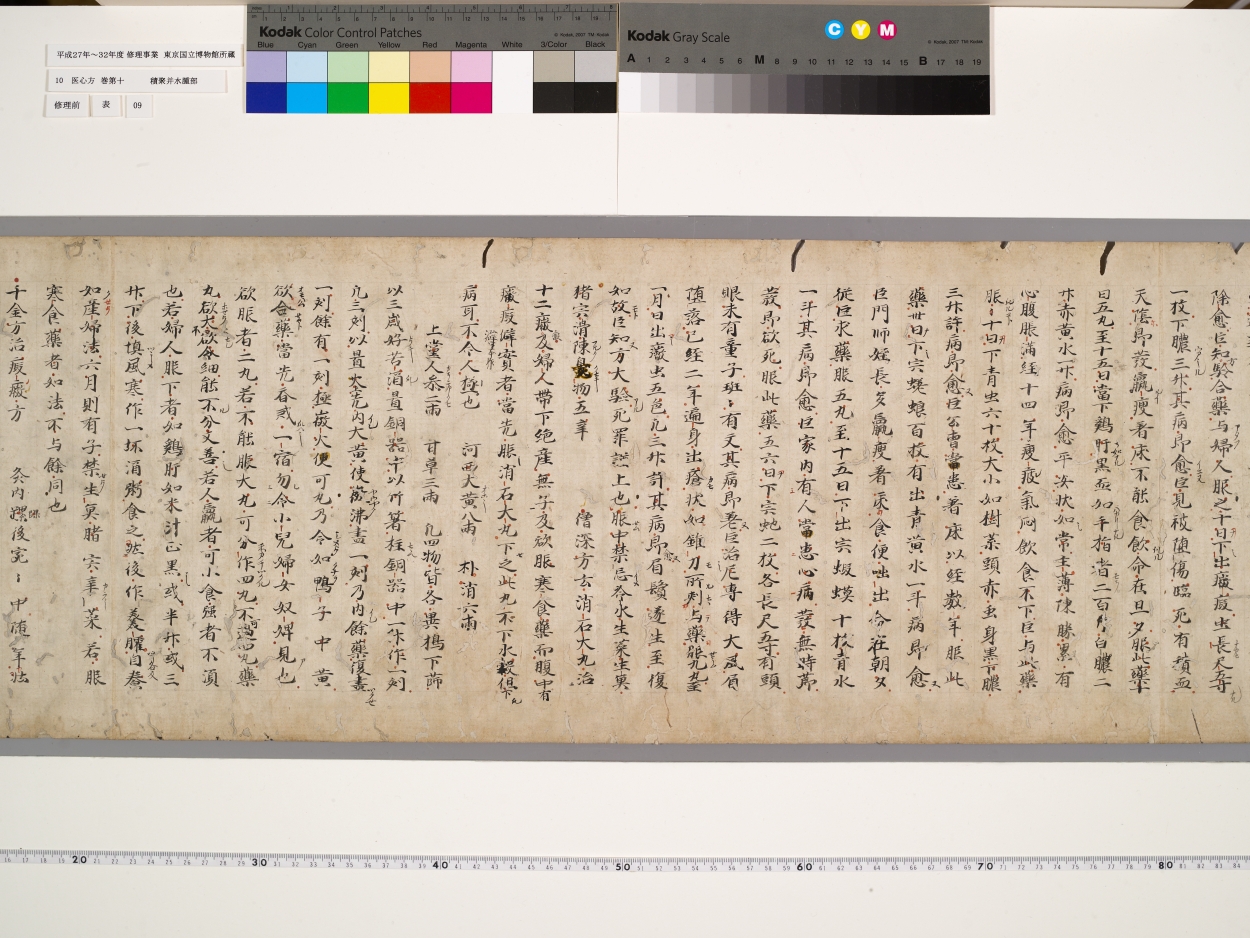 平成27年～32年度 修理事業 東京国立博物館所蔵
10 医心方 巻第十 積聚并水腫部
修理前 表 09
Kodak Color Control Patches
Blue Cyan Green Yellow Red Magenta White 3/Color Black
Kodak Gray Scale
C Y M
A 1 2 3 4 5 6 M 8 9 10 11 12 13 14 15 B 17 18 19
除愈臣知驗合藥与婦人服之十日下出癥瘕虫長尺五寸
一枚下膿三升其病即愈臣見被堕傷臨死有積血
天陰即發羸瘦着床不能食飲命在旦夕服此藥
日五丸至十五日當下鷄肝黒血如手指者二百白膿二
升赤黄水一升病即愈平安狀如常主薄陳勝累有
心腹脹滿経十四年瘦瘕氣悶飲食不下臣与此藥
服十日下青虫六十枚大小如樹葉頭赤虫身黒下膿
三升許病即愈臣公曹當患着床以経數年服此
藥廿日下宍蜣蜋百枚有出青黄水一斗病即愈
臣門師姪長多羸瘦着床食便吐出命在朝夕
従臣求藥服五丸至十五日下出宍蝦蟆十枚青水
一斗其病即愈臣家内有人當患心病發無時節
發即欲死服此藥五六日下宍虵二枚各長尺五寸有頭
眼未有童子班〻有文其病即差臣治尼専得大風眉
堕落已経二年遍身出瘡狀如錐刀所刾与藥服九至
一月日出癥出五色凡三升許其病即眉鬚遂生至復
如故臣知方大驗死罪謹上也服中禁忌冷水生菜生菓
猪宍滑陳臭物五辛 僧深方云消石大丸治
十二癥及婦人帶下絶産無子及欲服寒食藥而腹中有
癥瘕癖實者當先服消石大丸下之此丸不下水穀但下
病耳不令人極也 河西大黄八兩 朴消六兩
上堂人参二兩 甘草三兩 凡四物皆各異擣下篩
以三歳好苦酒置銅器中以竹箸柱銅器中一升作一刻
凡三刻以置火上先内大黄使微沸盡一刻乃内餘藥復盡
一刻餘有一刻極微火便可丸乃令如鴨子中黄
欲合藥當先春戒一宿勿令小兒婦女奴婢見也
欲服者二丸若不能服大丸可分作四丸不過四丸藥
丸欲大欲細能不分丈善若人羸者可小食強者不須
也若婦人服下者如鷄肝如米汁正黒或半升或三
升下後慎風寒作一坏酒粥食之然後作羹臛自養
如産婦法六月則有子禁生臭猪宍辛菜若服
寒食藥者如法不与餘同也
千金方治瘕癥方
20 30 40 50 60 70 80